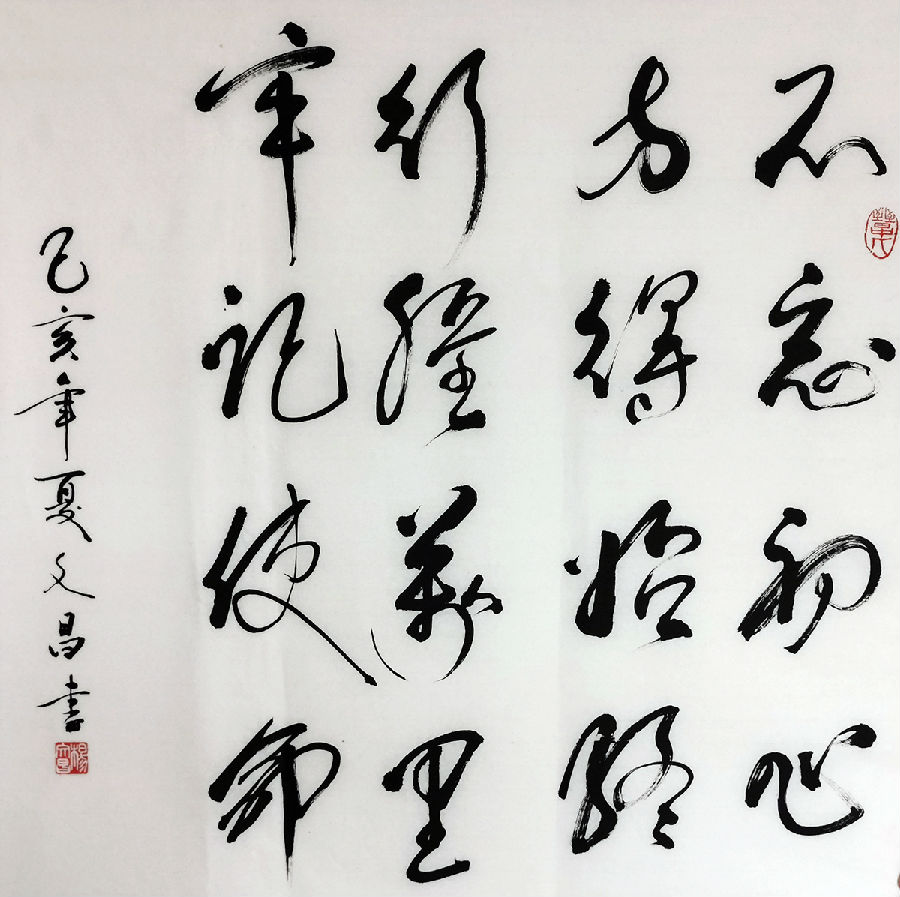 不忘初心
方得始終
行經萬里
牢記使命
己亥年夏文昌書